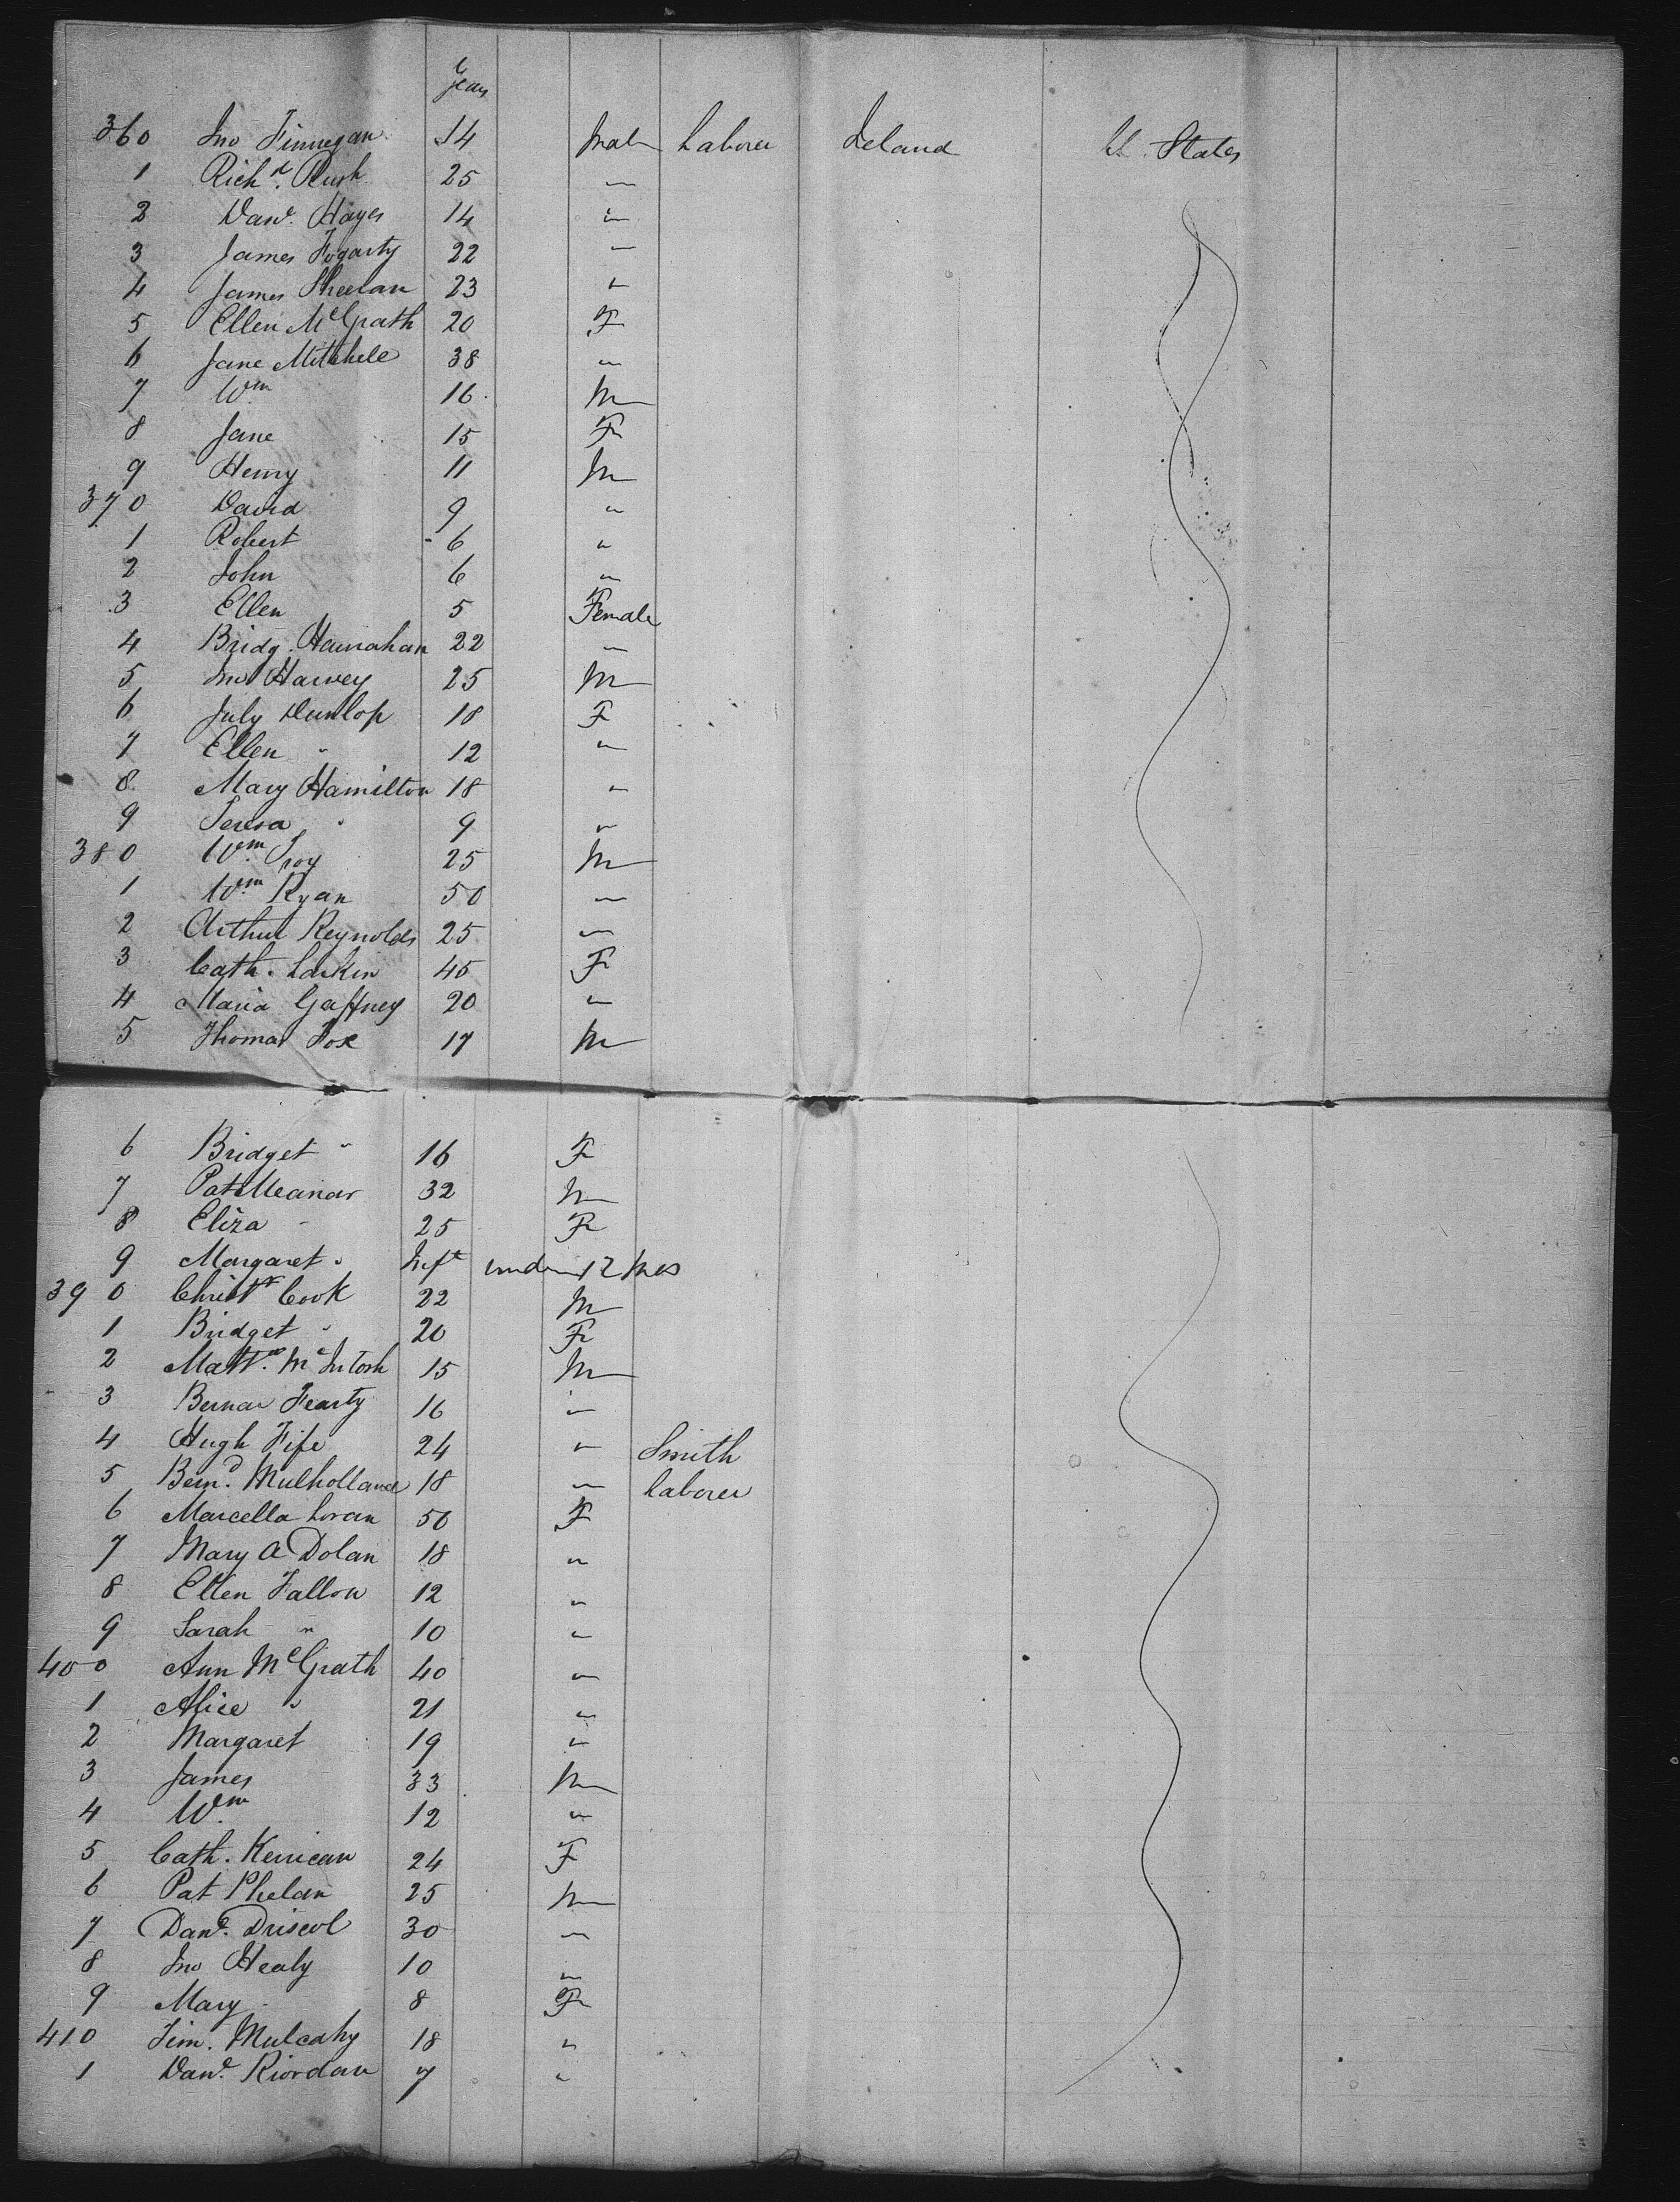 Years
360 Jno Finnegan 14 Male Laborer Ireland U. States
1 Richd. Rush 25 "
2 Danl. Hayes 14 "
3 James Fogarty 22 "
4 James Sheelan 23 "
5 Ellen McGrath 20 F
6 Jane Mitchele 38 "
7 Wm 16 M
8 Jane 15 F
9 Henry 11 M
370 David 9 "
1 Robert 6 "
2 John 6 "
3 Ellen 5 Female
4 Bridg. Hanrahan 22 "
5 Jno Harvey 25 M
6 July Dunlop 18 F
7 Ellen " 12 "
8 Mary Hamilton 18 "
9 Teresa " 9 "
380 Wm. Troy 25 M
1 Wm Ryan 50 "
2 Arthur Reynolds 25 "
3 Cath. Larkin 45 F
4 Maria Gaffney 20 "
5 Thomas Fox 17 M
6 Bridget " 16 F
7 Pat Meanar 32 M
8 Eliza " 25 F
9 Margaret " Inft under 12 mos
390 Christr Cook 22 M
1 Bridget " 20 F
2 Matt. McIntosh 15 M
3 Bernar Fearty 16 "
4 Hugh Fife 24 " Smith
5 Bernd. Mulholland 18 " Laborer
6 Marcella Loran 50 F
7 Mary A Dolan 18 "
8 Ellen Fallon 12 "
9 Sarah " 10 "
400 Ann McGrath 40 "
1 Alice " 21 "
2 Margaret 19 "
3 James 33 M
4 Wm. 12 "
5 Cath. Kerrican 24 F
6 Pat Phelan 25 M
7 Danl. Driscol 30 "
8 Jno Healy 10 "
9 Mary " 8 F
410 Tim. Mulcahy 18 "
1 Danl. Riordan 7 "